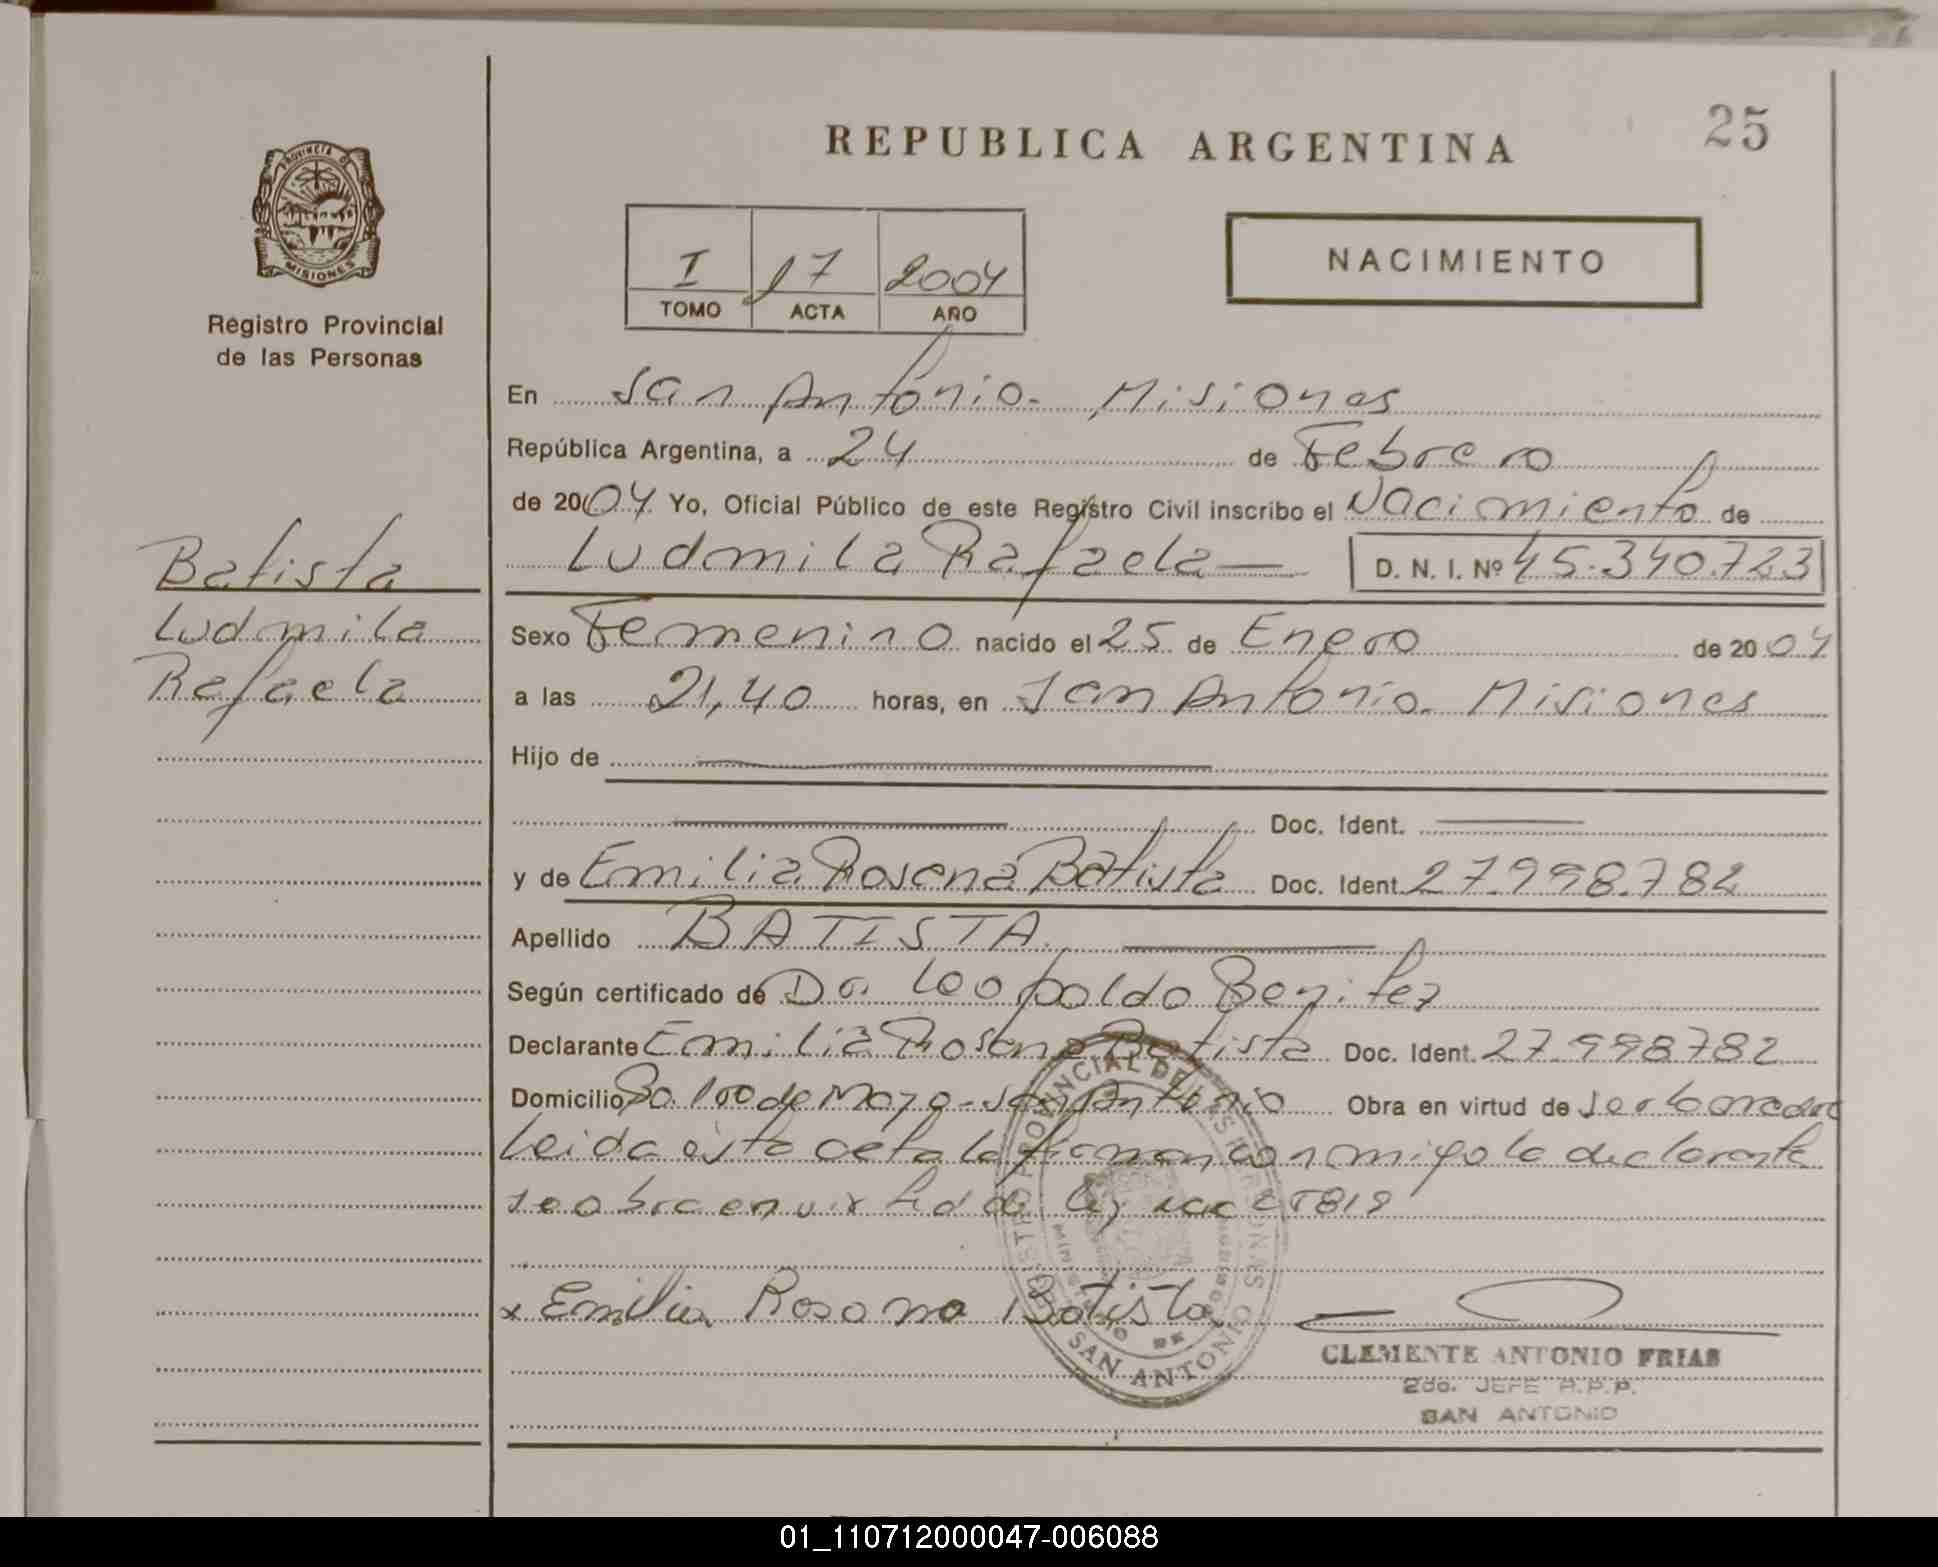 25
REPUBLICA ARGENTINA
PROVINCIA DE
MISIONES
Registro Provincial
de las Personas
I 17 2004
TOMO ACTA AÑO
NACIMIENTO
En San Antonio. Misiones
República Argentina, a 24 de Febrero
de 2004 Yo, Oficial Público de este Registro Civil inscribo el Nacimiento de
Ludmila Rafaela D. N. I. Nº 45.340.723
Batista
Ludmila
Rafaela
Sexo Femenino nacido el 25 de Enero de 2004
a las 21,40 horas, en San Antonio. Misiones
Hijo de
Doc. Ident.
y de Emilia Rosana Batista Doc. Ident. 27.998.782
Apellido BATISTA
Según certificado de Dr. Leopoldo Benitez
Declarante Emilia Rosana Batista Doc. Ident. 27.998782
Domicilio 100 de Mayo - San Antonio Obra en virtud de ser la madre
Leida esta acta la firman conmigo la declarante
se obra en virtud de ley
x Emilia Rosana Batista
REGISTRO PROVINCIAL DE LAS PERSONAS
MINISTERIO DE
SAN ANTONIO
CLEMENTE ANTONIO FRIAS
2do. JEFE R.P.P.
SAN ANTONIO
01_110712000047-006088